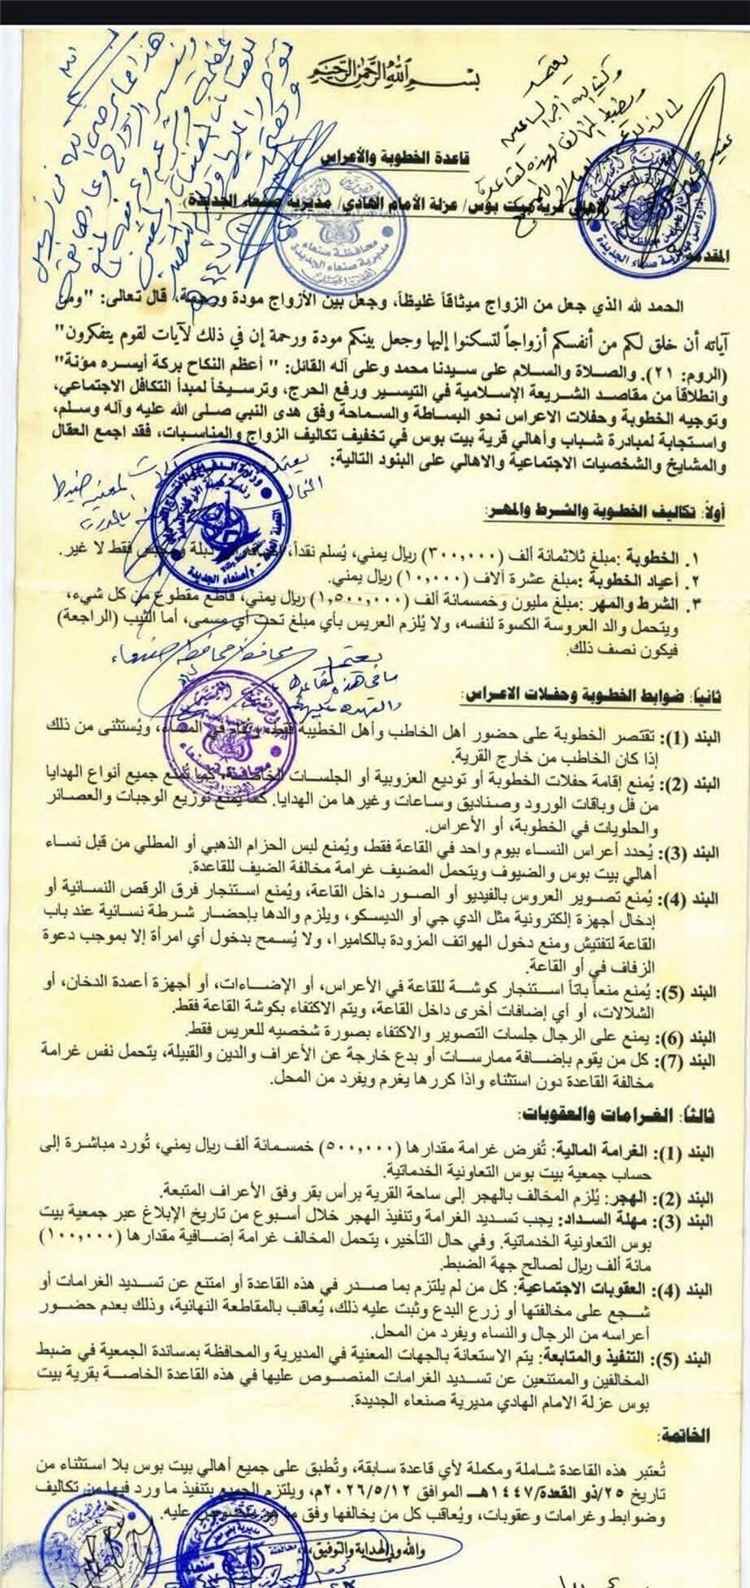 بسم الله الرحمن الرحيم
قاعدة الخطوبة والأعراس
لأهالي قرية بيت بوس/ عزلة الأمام الهادي/ مديرية صنعاء الجديدة)
المقدمة
الحمد لله الذي جعل من الزواج ميثاقاً غليظاً، وجعل بين الأزواج مودة ورحمة، قال تعالى: "ومن
آياته أن خلق لكم من أنفسكم أزواجاً لتسكنوا إليها وجعل بينكم مودة ورحمة إن في ذلك لآيات لقوم يتفكرون"
(الروم: ٢١). والصلاة والسلام على سيدنا محمد وعلى آله القائل: " أعظم النكاح بركة أيسره مؤنة"
وانطلاقاً من مقاصد الشريعة الإسلامية في التيسير ورفع الحرج، وترسيخاً لمبدأ التكافل الاجتماعي،
وتوجيه الخطوبة وحفلات الاعراس نحو البساطة والسماحة وفق هدى النبي صلى الله عليه وآله وسلم،
واستجابة لمبادرة شباب وأهالي قرية بيت بوس في تخفيف تكاليف الزواج والمناسبات، فقد اجمع العقال
والمشايخ والشخصيات الاجتماعية والاهالي على البنود التالية:
أولاً: تكاليف الخطوبة والشرط والمهر:
١. الخطوبة :مبلغ ثلاثمائة ألف (٣٠٠,٠٠٠) ريال يمني، يُسلم نقداً، فقط لا غير.
٢. أعياد الخطوبة :مبلغ عشرة ألاف (١٠,٠٠٠) ريال يمني.
٣. الشرط والمهر :مبلغ مليون وخمسمائة ألف (١,٥٠٠,٠٠٠) ريال يمني، قاطع مقطوع من كل شيء،
ويتحمل والد العروسة الكسوة لنفسه، ولا يُلزم العريس بأي مبلغ تحت أي مسمى، أما الثيب (الراجعة)
فيكون نصف ذلك.
ثانياً: ضوابط الخطوبة وحفلات الاعراس:
البند (1): تقتصر الخطوبة على حضور أهل الخاطب وأهل الخطيبة فقط، وتُقام في المساء، ويُستثنى من ذلك
إذا كان الخاطب من خارج القرية.
البند (2): يُمنع إقامة حفلات الخطوبة أو توديع العزوبية أو الجلسات الخاصة، كما يُمنع جميع أنواع الهدايا
من فل وباقات الورود وصناديق وساعات وغيرها من الهدايا. كما يُمنع توزيع الوجبات والعصائر
والحلويات في الخطوبة، أو الأعراس.
البند (3): يُحدد أعراس النساء بيوم واحد في القاعة فقط، ويُمنع لبس الحزام الذهبي أو المطلي من قبل نساء
أهالي بيت بوس والضيوف ويتحمل المضيف غرامة مخالفة الضيف للقاعدة.
البند (4): يُمنع تصوير العروس بالفيديو أو الصور داخل القاعة، ويُمنع استئجار فرق الرقص النسائية أو
إدخال أجهزة إلكترونية مثل الدي جي أو الديسكو، ويلزم والدها بإحضار شرطة نسائية عند باب
القاعة لتفتيش ومنع دخول الهواتف المزودة بالكاميرا، ولا يُسمح بدخول أي امرأة إلا بموجب دعوة
الزفاف في أو القاعة.
البند (5): يُمنع منعاً باتاً استئجار كوشة للقاعة في الأعراس، أو الإضاءات، أو أجهزة أعمدة الدخان، أو
الشلالات، أو أي إضافات أخرى داخل القاعة، ويتم الاكتفاء بكوشة القاعة فقط.
البند (6): يمنع على الرجال جلسات التصوير والاكتفاء بصورة شخصيه للعريس فقط.
البند (7): كل من يقوم بإضافة ممارسات أو بدع خارجة عن الأعراف والدين والقبيلة، يتحمل نفس غرامة
مخالفة القاعدة دون استثناء واذا كررها يغرم ويفرد من المحل.
ثالثاً: الغرامات والعقوبات:
البند (1): الغرامة المالية: تُفرض غرامة مقدارها (٥٠٠,٠٠٠) خمسمائة ألف ريال يمني، تُورد مباشرة إلى
حساب جمعية بيت بوس التعاونية الخدماتية.
البند (2): الهجر: يُلزم المخالف بالهجر إلى ساحة القرية برأس بقر وفق الأعراف المتبعة.
البند (3): مهلة السداد: يجب تسديد الغرامة وتنفيذ الهجر خلال أسبوع من تاريخ الإبلاغ عبر جمعية بيت
بوس التعاونية الخدماتية. وفي حال التأخير، يتحمل المخالف غرامة إضافية مقدارها (١٠٠,٠٠٠)
مائة ألف ريال لصالح جهة الضبط.
البند (4): العقوبات الاجتماعية: كل من لم يلتزم بما صدر في هذه القاعدة او امتنع عن تسديد الغرامات أو
شجع على مخالفتها أو زرع البدع وثبت عليه ذلك، يُعاقب بالمقاطعة النهائية، وذلك بعدم حضور
أعراسه من الرجال والنساء ويفرد من المحل.
البند (5): التنفيذ والمتابعة: يتم الاستعانة بالجهات المعنية في المديرية والمحافظة بمساندة الجمعية في ضبط
المخالفين والممتنعين عن تسديد الغرامات المنصوص عليها في هذه القاعدة الخاصة بقرية بيت
بوس عزلة الامام الهادي مديرية صنعاء الجديدة.
الخاتمة:
تُعتبر هذه القاعدة شاملة ومكملة لأي قاعدة سابقة، وتُطبق على جميع أهالي بيت بوس بلا استثناء من
تاريخ ٢٥/ذو القعدة/١٤٤٧هـ الموافق ٢٠٢٦/٥/١٢م، ويلتزم الجميع بتنفيذ ما ورد فيها من تكاليف
وضوابط وغرامات وعقوبات، ويُعاقب كل من يخالفها وفق ما هو عليه.
والله ولي الهداية والتوفيق،،،